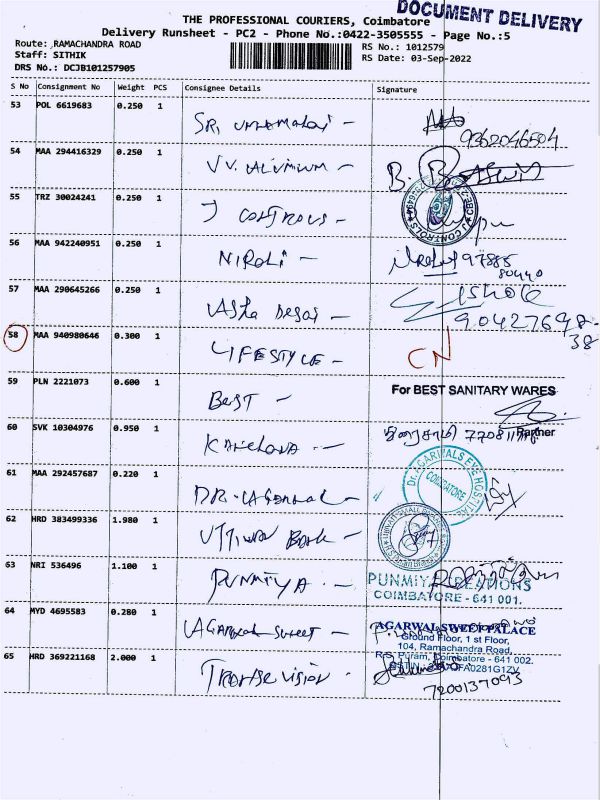 DOCUMENT DELIVERY
THE PROFESSIONAL COURIERS, Coimbatore
Delivery Runsheet - PC2 - Phone No.:0422-3505555 - Page No.:5
Route: RAMACHANDRA ROAD RS No.: 1012579
Staff: SITHIK RS Date: 03-Sep-2022
DRS No.: DCJB101257905
S No Consignment No Weight PCS Consignee Details Signature
53 POL 6619683 0.250 1
9362046504
54 MAA 294416329 0.250 1 VV. ALUMINUM -
55 TRZ 30024241 0.250 1 J CONTROLS -
J CONTROLS
56 MAA 942240951 0.250 1 NIROLI -
57 MAA 290645266 0.250 1 Usha Desai -
58 MAA 940980646 0.300 1 LIFESTYLE - CN
59 PLN 2221073 0.600 1 BEST -
For BEST SANITARY WARES
Partner
60 SVK 10304976 0.950 1
61 MAA 292457687 0.220 1 DR. AGARWAL -
Dr. AGARWALS EYE HOSPITAL
COIMBATORE
62 HRD 383499336 1.980 1 Ujjivan Bank -
63 NRI 536496 1.100 1 PUNMIYA. -
PUNMIYA CREATIONS
COIMBATORE - 641 001.
64 MYD 4695583 0.280 1 Agarwal Sweet -
AGARWAL SWEET PALACE
Ground Floor, 1 st Floor,
104, Ramachandra Road,
R.S. Puram, Coimbatore - 641 002.
65 HRD 369221168 2.000 1
7200137093